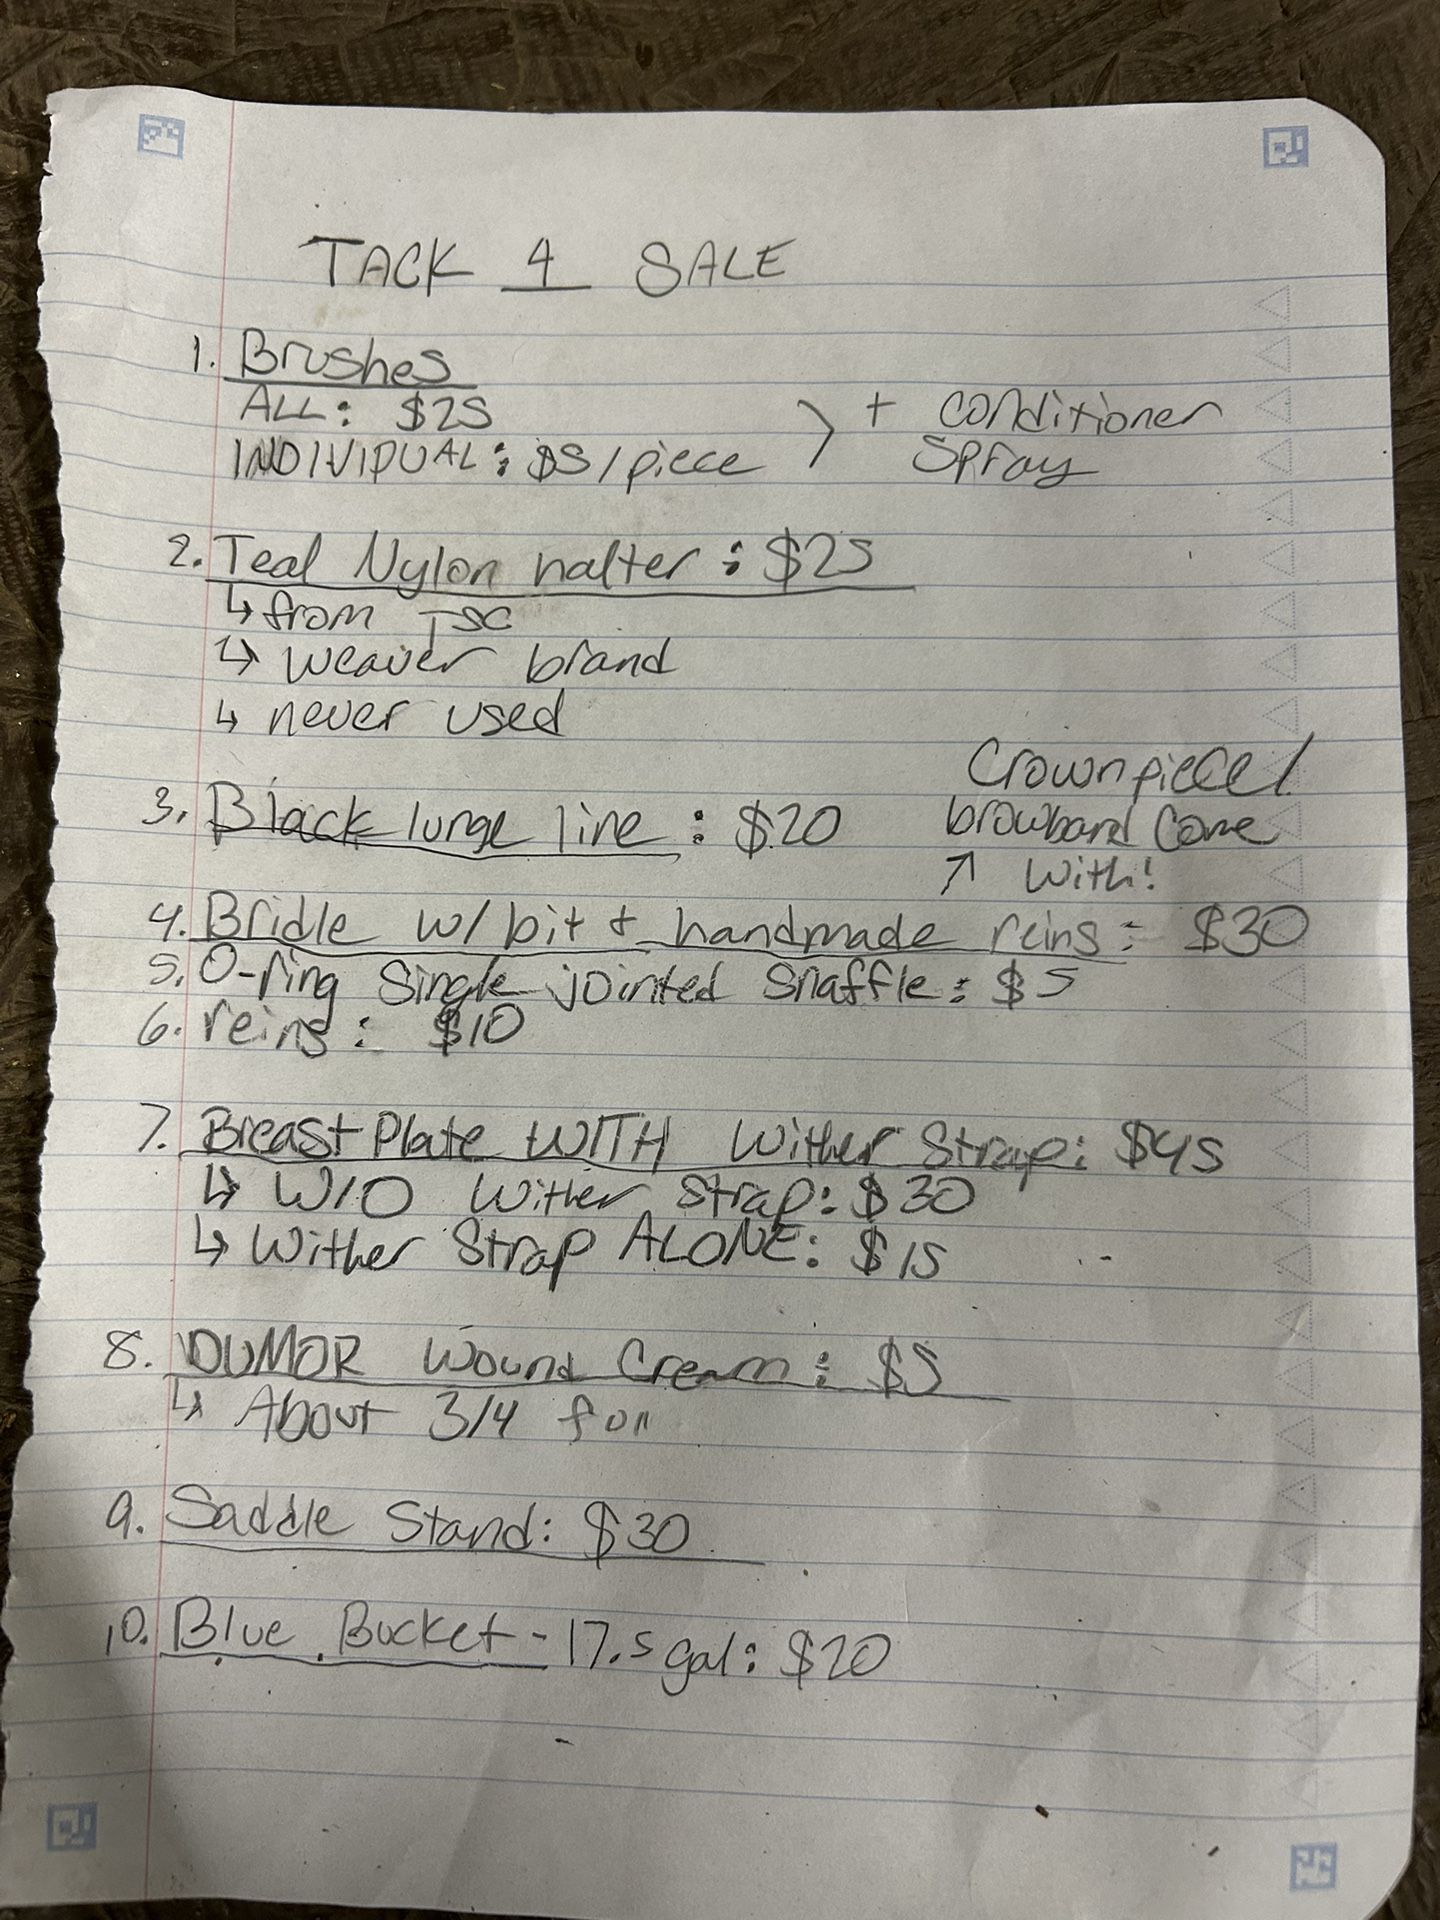 TACK 4 SALE
1. Brushes
ALL: $25
INDIVIDUAL: $5/piece
+ conditioner
spray
2. Teal Nylon halter: $25
↳ from TSC
↳ weaver brand
↳ never used
3. Black lunge line: $20
Crownpiece/
browband come
↗ with!
4. Bridle w/ bit + handmade reins: $30
5. O-ring Single jointed Snaffle: $5
6. reins: $10
7. Breast Plate WITH Wither Strap: $45
↳ W/O Wither Strap: $30
↳ Wither Strap ALONE: $15
8. DUMOR Wound Cream: $5
↳ About 3/4 full
9. Saddle Stand: $30
10. Blue Bucket - 17.5 gal: $20